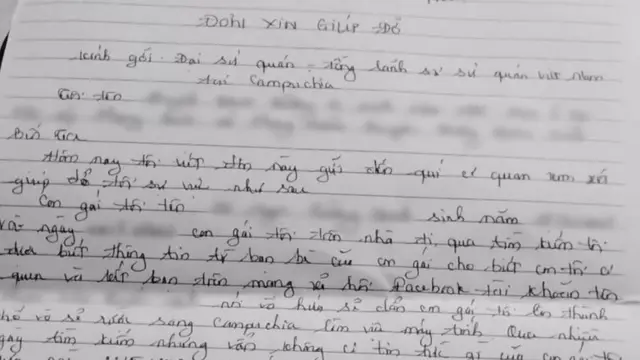 ĐƠN XIN GIÚP ĐỠ
Kính gởi: Đại sứ quán - tổng lãnh sự sứ quán việt Nam
tại Campuchia
Tôi tên
hôm nay tôi viết đơn này gửi đến quí cơ quan xem xét
giúp đỡ tôi sự việc như sau
Con gái tôi tên sinh năm
và ngày con gái tôi trốn nhà đi, qua tìm kiếm tôi
được biết thông tin từ bạn bè của con gái cho biết con tôi có
quen và kết bạn trên mạng xã hội Facebook tài khoản tên
nói và hứa sẽ dẫn con gái tôi lên thành
phố và sẽ rước sang Campuchia làm việc máy tính. Qua nhiều
ngày tìm kiếm nhưng vẫn không có tin tức gì của con